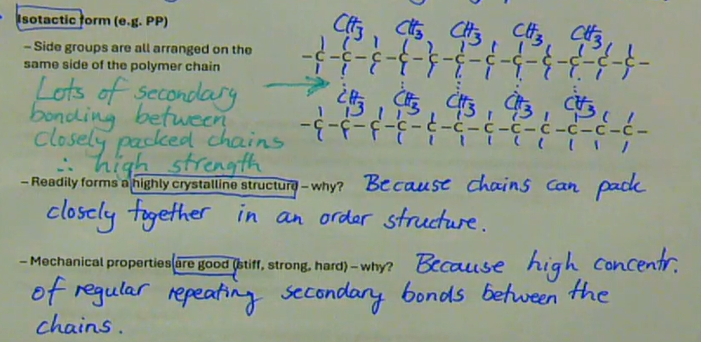 Isotactic form (e.g. PP)
– Side groups are all arranged on the
same side of the polymer chain
Lots of secondary
bonding between
closely packed chains
∴ high strength
CH3 CH3 CH3 CH3 CH3
-C-C-C-C-C-C-C-C-C-C-
CH3 CH3 CH3 CH3 CH3
-C-C-C-C-C-C-C-C-C-C-
– Readily forms a highly crystalline structure – why? Because chains can pack
closely together in an order structure.
– Mechanical properties are good (stiff, strong, hard) – why? Because high concentr.
of regular repeating secondary bonds between the
chains.